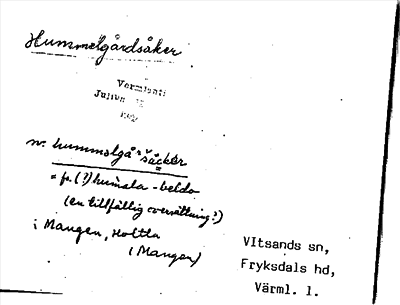 Hummelgårdsåker
Värmlants
n. hummalgå rsäckär
= fi. (?) humala-beldo
(en tillfällig översättning?)
i Mangen, Holtla
(Mangen)
VItsands sn,
Fryksdals hd,
Värml. l.